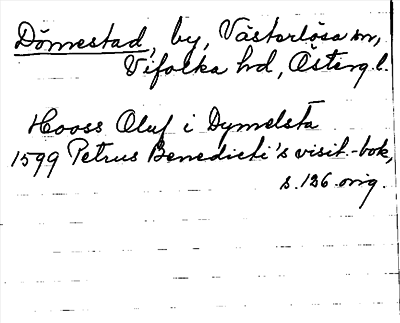 Dömestad, by, Västerlösa sn,
Vifolka hd, Österg. l.
Hooss Oluf i Dymelsta
1599 Petrus Benedicti's visit.-bok,
s. 126 orig.